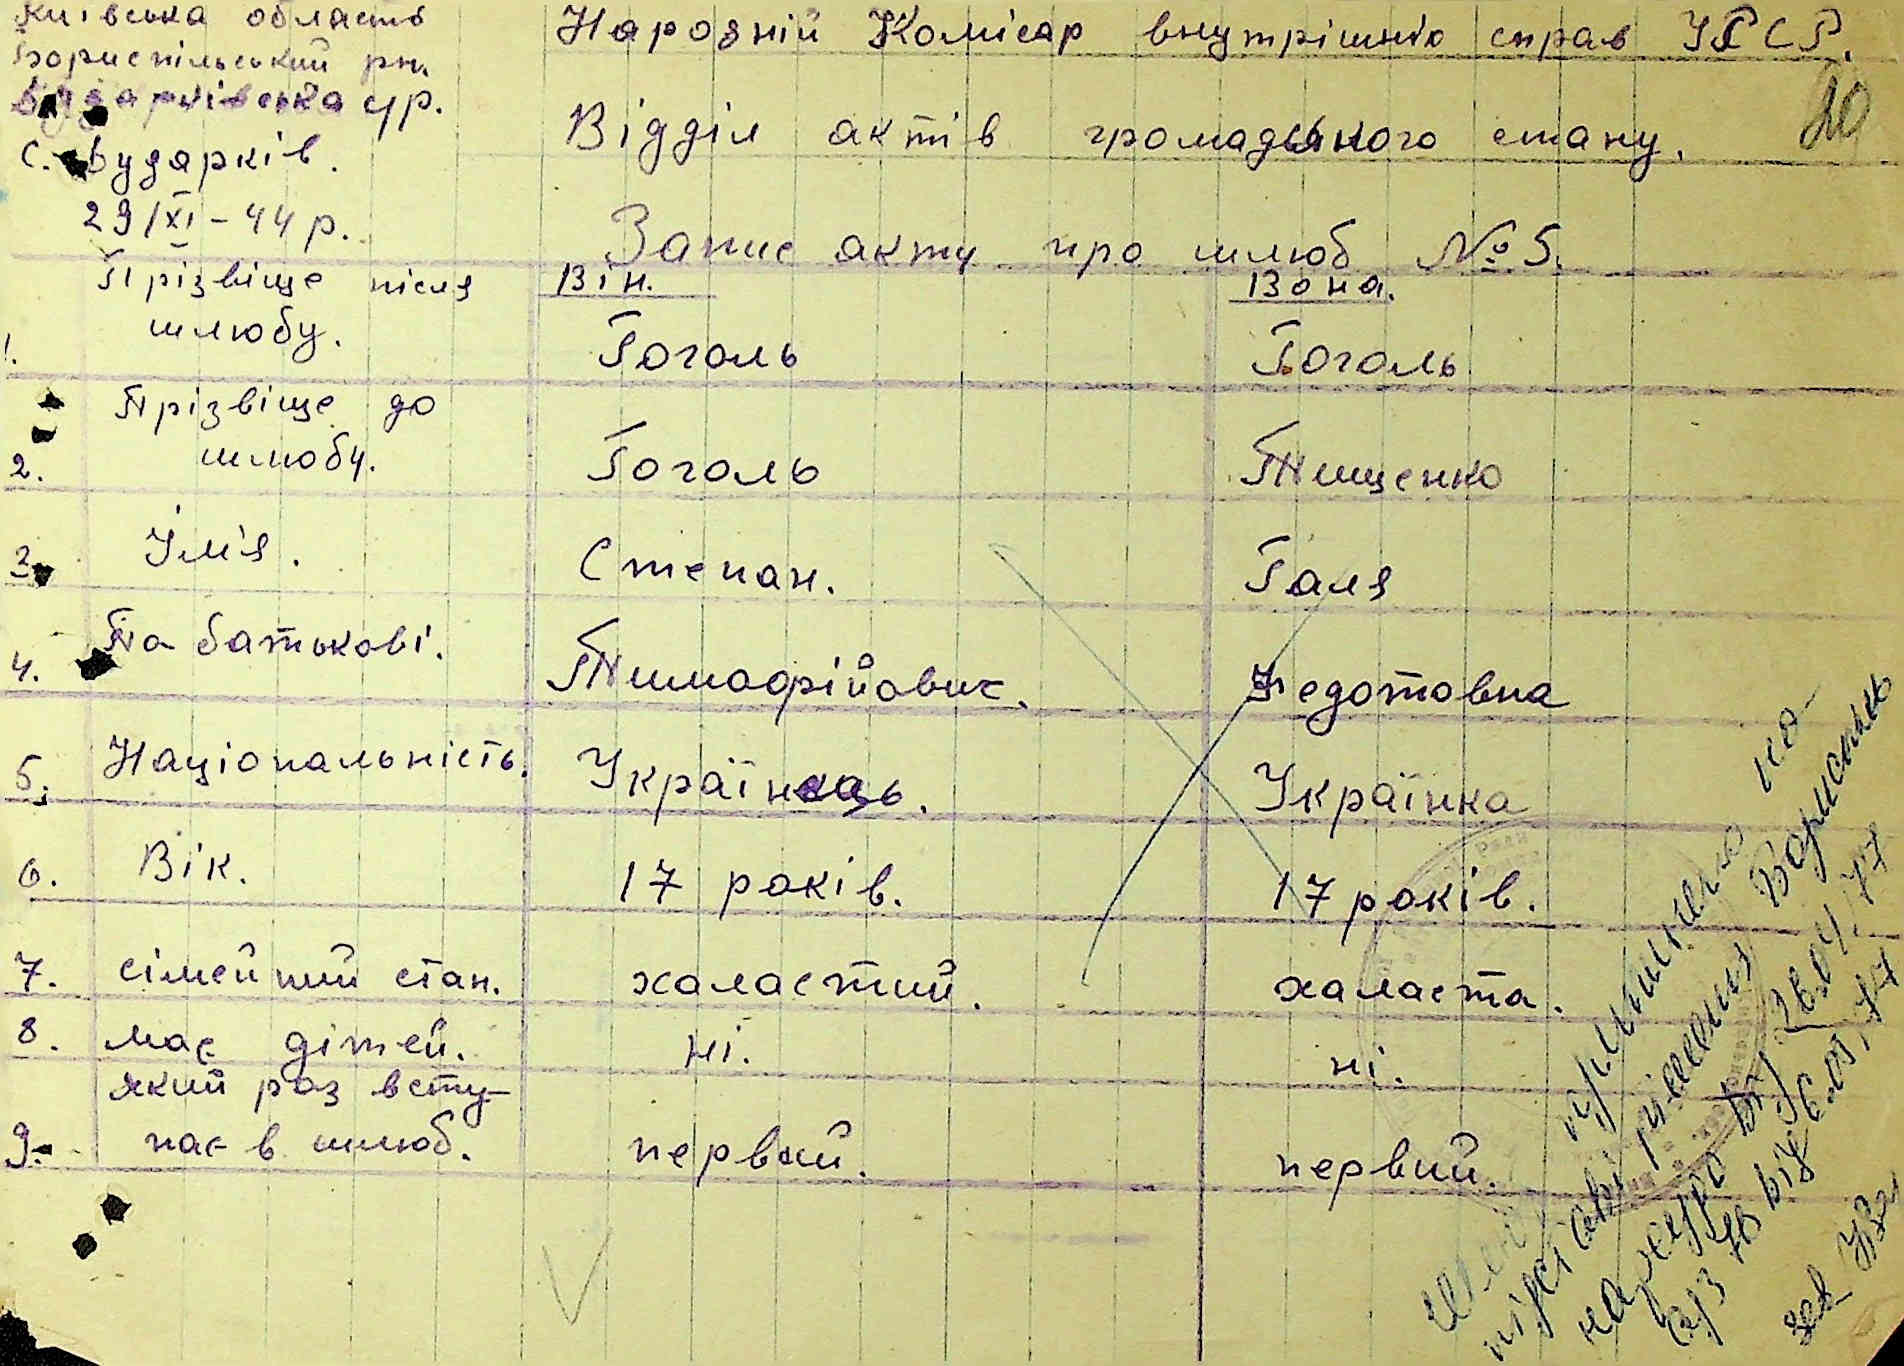 Київська область
Бориспільський рн.
Вударківська с/р.
с. Вударків.
29/XI – 44 р.
Народній Комісар внутрішніх справ УРСР.
20
Відділ актів громадяного стану.
Запис акту про шлюб № 5.
Він. Вона.
1. Прізвіще після шлюбу. Гоголь Гоголь
2. Прізвіще до шлюбу. Гоголь Тищенко
3. Імʼя. Степан. Галя
4. По батькові. Тимофійович. Федотовна
5. Національність. Українець. Українка
6. Вік. 17 років. 17 років.
7. сімейний стан. халастий. халаста.
8. має дітей. ні. ні.
9. який раз всту-
пає в шлюб. первий. первий.
шлюб припинено на
підставі рішення Бориспіль
нарсуду від 26.04.77
а/з № від 6.05.77
зав